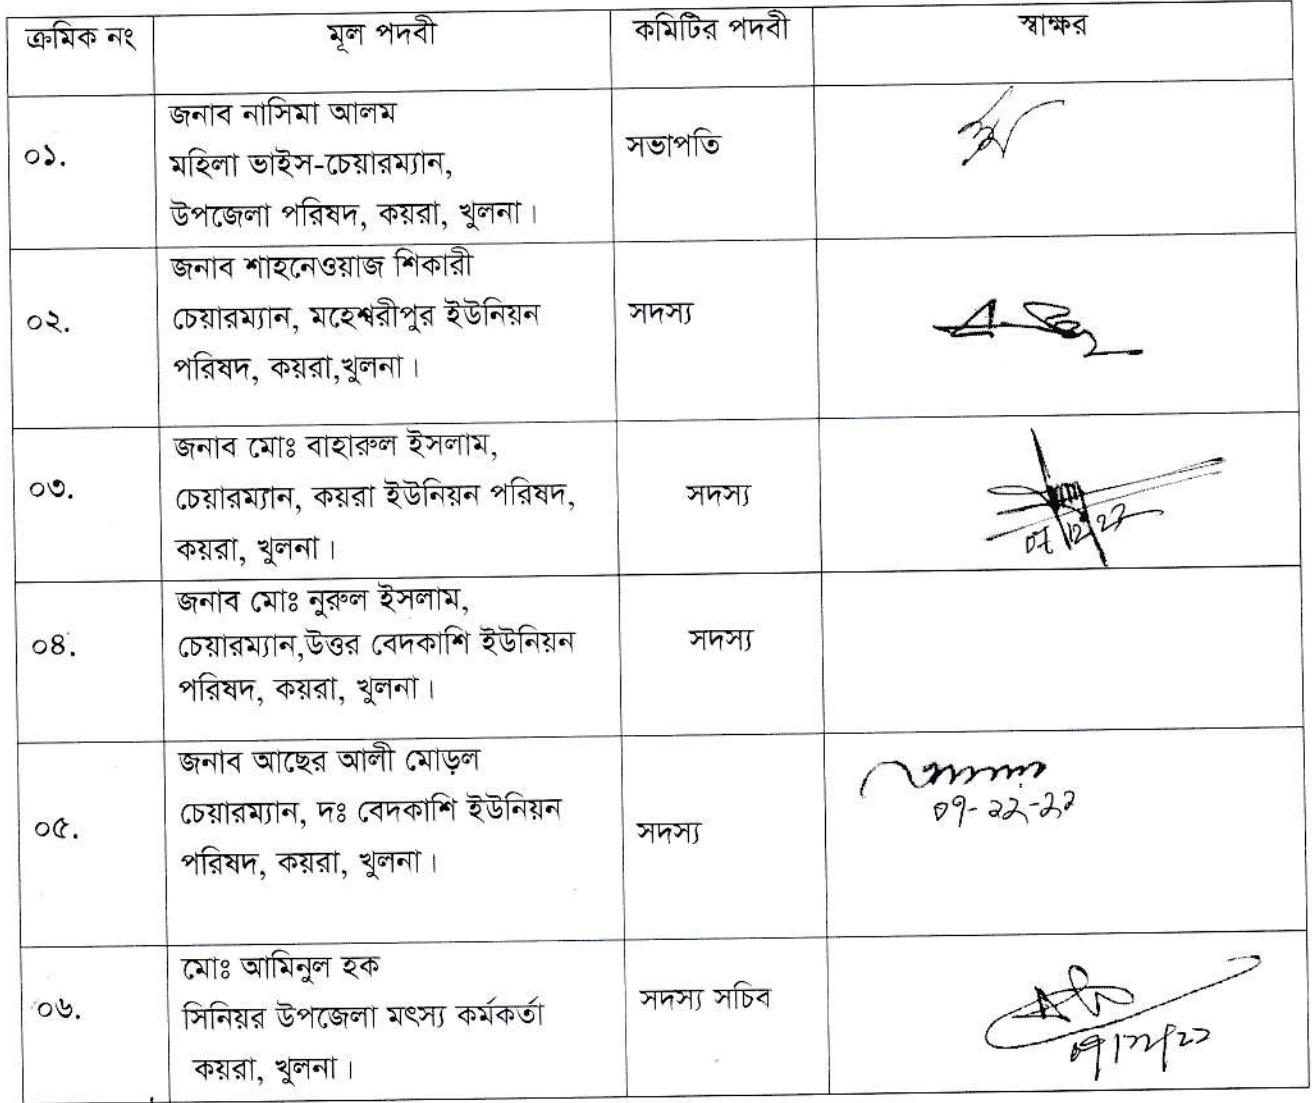 ক্রমিক নং মূল পদবী কমিটির পদবী স্বাক্ষর
০১.
জনাব নাসিমা আলম
মহিলা ভাইস-চেয়ারম্যান,
উপজেলা পরিষদ, কয়রা, খুলনা।
সভাপতি
০২.
জনাব শাহনেওয়াজ শিকারী
চেয়ারম্যান, মহেশ্বরীপুর ইউনিয়ন
পরিষদ, কয়রা,খুলনা।
সদস্য
০৩.
জনাব মোঃ বাহারুল ইসলাম,
চেয়ারম্যান, কয়রা ইউনিয়ন পরিষদ,
কয়রা, খুলনা।
সদস্য
০৪.
জনাব মোঃ নুরুল ইসলাম,
চেয়ারম্যান,উত্তর বেদকাশি ইউনিয়ন
পরিষদ, কয়রা, খুলনা।
সদস্য
০৫.
জনাব আছের আলী মোড়ল
চেয়ারম্যান, দঃ বেদকাশি ইউনিয়ন
পরিষদ, কয়রা, খুলনা।
সদস্য
০৭-১২-২২
০৬.
মোঃ আমিনুল হক
সিনিয়র উপজেলা মৎস্য কর্মকর্তা
কয়রা, খুলনা।
সদস্য সচিব